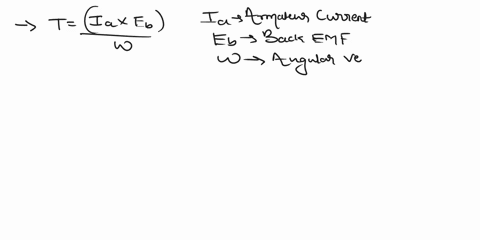 → T = (Ia × Eb) / W
Ia → Armateur Current
Eb → Back EMF
W → Angular ve